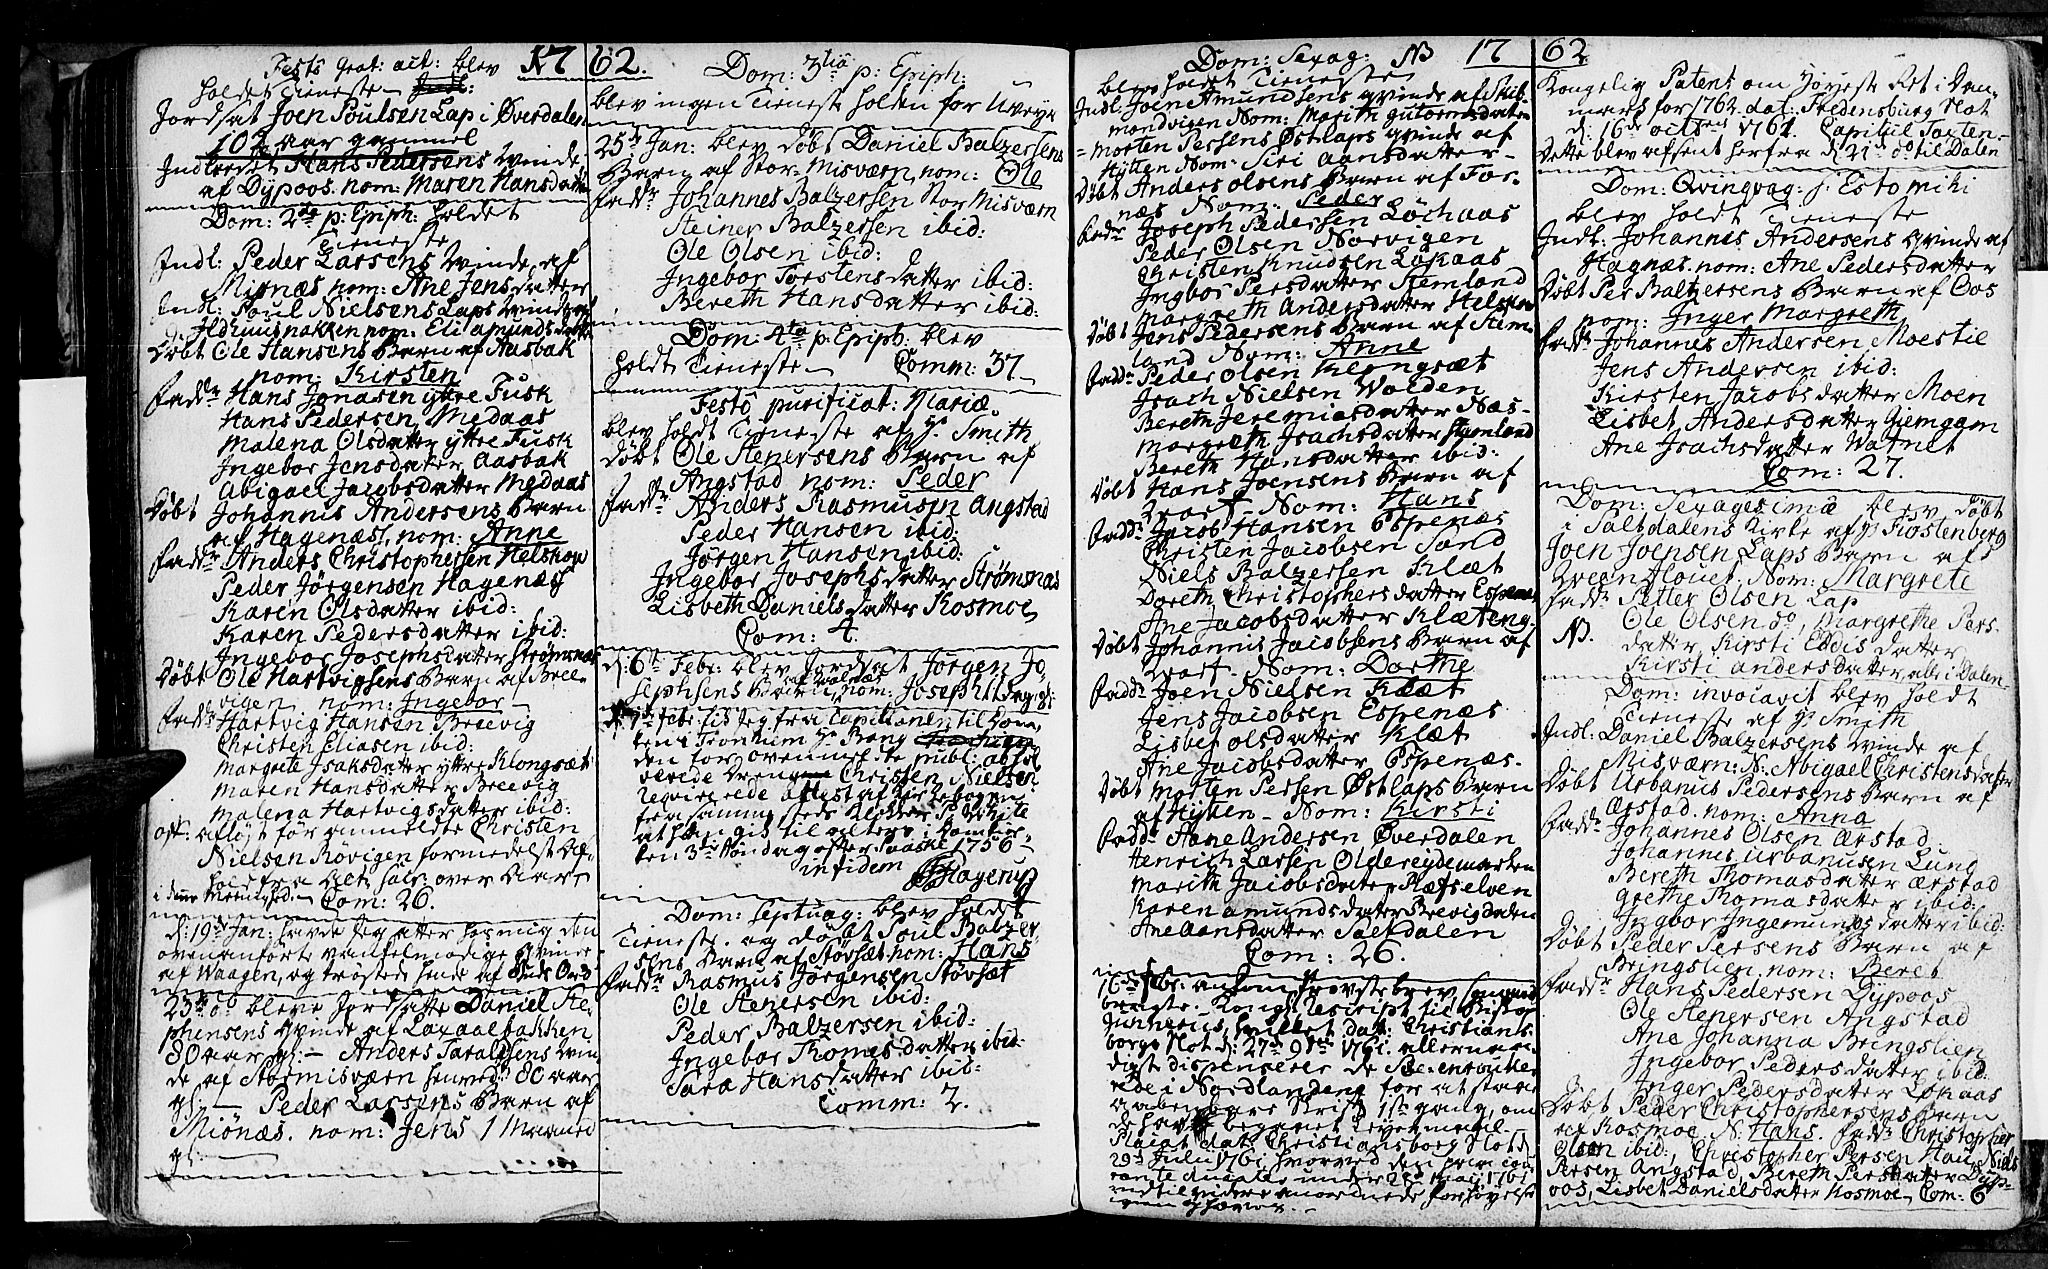 1762.
Festo grat: act: blev
holdet Tieneste
Jordsat Joen Poulsen Lap i Øverdalen
102 aar gammel
Indledet Hans Pedersens Qvinde
af Dypoos. nom: Maren Hansdatter
Dom: 2da p: Epiph: holdet
Tieneste
Indl: Peder Larsens Qvinde af
Misnæs nom: Ane Jensdatter
Indl: Poul Nielsens Laps Qvinde af
Ildhuusnakken nom: Eli Amundsdatter
Døbt Ole Hansens Barn af Aasbak
nom: Kirsten
Fadr Hans Jonasen yttre Fusk
Hans Pedersen Medaas
Malena Olsdatter yttre Fusk
Ingebor Jensdatter Aasbak
Abigael Jacobsdatter Medaas
Døbt Johannis Andersens Barn
af Hagenæs, nom: Anne
Fadr Anders Christophersen Helskop
Peder Jørgensen Hagenæs
Karen Olsdatter ibid:
Karen Pedersdatter ibid:
Ingebor Josephsdatter Strømsnæs
Døbt Ole Hartvigsens Barn af Bree-
vigen nom: Ingebor
Fadr Hartvig Hansen Breevig
Christen Eliasen ibid:
Margrete Isaksdatter yttre Klongsæt
Maren Hansdatter Breevig
Malena Hartvigsdatter ibid:
aflagt før anmeldte Christen
Nielsen Røvigen formedelst
over
Com: 26.
d: 19de Jan: havde jeg atter hos mig den
ovenanførte vankelmodige Qvinde
af Waagen, og trøstede hende af Guds Ord
23de do bleve Jordsatte Daniel Ste-
phensens Qvinde af Laxaalbakken
80 aar gl: – Anders Taraldsens Qvin
de af Stormisværn henved 80 aar
gl: – Peder Larsens Barn af
Miønæs. nom: Jens 1 Maaned
gl:
Dom: 3tia p: Epiph:
blev ingen Tieneste holden for Uveyr
25de Jan: blev døbt Daniel Balzersens
Barn af Stor Misværn, nom: Ole
Fadr Johannes Balzersen Stor Misværn
Steiner Balzersen ibid:
Ole Olsen ibid:
Ingebor Torstensdatter ibid:
Bereth Hansdatter ibid:
Dom: 4ta p: Epiph: blev
holdt Tieneste – Comm: 37
Festo purificat: Mariæ
blev holdt Tieneste af Hr Smith
Døbt Ole Stenersens Barn af
Angstad nom: Peder
Fadr Anders Rasmusen Angstad
Peder Hansen ibid:
Jørgen Hansen ibid:
Ingebor Josephsdatter Strømsnæs
Lisbeth Danielsdatter Kosmoe
Com: 4.
d: 6te Febr: blev Jordsat Jørgen Jo-
sephsens Barn af Valnæs nom: Joseph
7de Febr: fik Jeg fra Capellanen til Dom
ken i Tronhiem Hr Bang
den for ovenmelte publ: absol
verede Dreng Christen Nielsen
reqvirerede attest af Kirkebogen
fra sammesteds Klokker S: White
at han gik til alters i Domkir-
ken 3de Søndag efter Paaske 1756
in fidem Hagerup
Dom: Septuag: blev holdet
Tieneste. og døbt Poul Balzer-
sens Barn af Støvsæt nom: Hans
Fadr Rasmus Jørgensen Støvsæt
Ole Stenersen ibid:
Peder Balzersen ibid:
Ingebor Thomesdatter ibid:
Sara Hansdatter ibid:
Comm: 2.
1762
Dom: Sexag: NB
blev holdt Tieneste
Indl: Joen Amundsens Qvinde af Skib-
mandvigen Nom: Marith Gutormsdatter
– Morten Persens Østlaps Qvinde af
Hytten Nom: Siri Aansdatter –
Døbt Anders Olsens Barn af For-
næs Nom: Peder
Fadr Joseph Pedersen Løchaas
Peder Olsen Norvigen
Christen Knudsen Løkaas
Ingbor Persdatter Stemland
Margreth Andersdatter Helskop
Døbt Jens Pedersens Barn af Stem-
land Nom: Anne
Fadr Peder Olsen Klongsæt
Isach Nielsen Valden
Bereth Jeremiasdatter Næs-
Margreth Isachsdatter Stemland
Bereth Hansdatter ibid:
Døbt Hans Joensens Barn af
Qvarf – Nom: Hans
Fadr Jacob Hansen Espenæs
Christen Jacobsen Sand
Niels Balzersen Klæt
Doreth Christophersdatter Espenæs
Ane Jacobsdatter Klæteng
Døbt Johannis Jacobsens Barn af
Qvarf. Nom: Dorthe
Fadr Joen Nielsen Klæt
Jens Jacobsen Espenæs
Lisbet Olsdatter Klæt
Ane Jacobsdatter Espenæs.
Døbt Morten Persen Østlaps Barn
af Hytten – Nom: Kirsti
Fadr Aane Andersen Øverdalen
Henrich Larsen Oldereydemarken
Marith Jacobsdatter Klætselven
Karen Amundsdatter Brevigdalen
Ane Aansdatter Saltdalen
Com: 26.
16de Febr: ankom Provstebrev,
bragte Kongl: Rescript til Bishop
Gunnerus, hvilket dat: Christians-
borgs Slot d: 27de 9br 1761. allernaa-
digst dispenserer de
rede i Nordlandene for at staae
aabenbare Skrift 1ste gang, om
de have begaaet Leyermaal
Placat dat: Christiansborg Slot d:
29de Julii 1761 hvorved den
indtil videre anordnede forhøyelse
Kongelig Patent om Høyeste Ret i Dan-
mark for 1762. dat: Fredensburg Slot
d: 16de octbris 1761. Capitul Taxten –
Dette blev afsent herfra d: 21de do til Dalen
Dom: Qvinqvag: s: Estomihi
blev holdt Tieneste
Indl: Johannes Andersens Qvinde af
Hagnæs. nom: Ane Pedersdatter
Døbt Per Baltzersens Barn af Oos
nom: Inger Margreth
Fadr Johannes Andersen Moestie
Jens Andersen ibid:
Kirsten Jacobsdatter Moen
Lisbet Andersdatter Giemgam
Ane Isachsdatter Watnet
Com: 27.
Dom: Sexagesimæ blev døbt
i Saltdalens Kirke af Hr Flostenberg
Joen Joensen Laps Barn af
Nom: Margrete
Fadr Petter Olsen Lap
NB. Ole Olsen do, Margrethe Pers-
datter, Kirsti Eddisdatter
Kirsti andersdatter, alle i Dalen
Dom: invocavit blev holdt
Tieneste af Hr Smith
Indl: Daniel Balzersens Qvinde af
Misværn: N: Abigael Christensdatter
Døbt Urbanus Pedersens Barn af
Ærstad. nom: Anna
Fadr Johannes Olsen Ærstad
Johannes Urbanusen Lund
Bereth Thomasdatter Ærstad
Grethe Thomasdatter ibid:
Ingbor Ingemundsdatter ibid:
Døbt Peder Persens Barn af
Bringslien nom: Beret
Fadr Hans Pedersen Dypoos
Ole Stenersen Angstad
Ane Johanna Bringslien
Ingebor Pedersdatter ibid:
Inger Pedersdatter Løkaas
Døbt Peder Christophersens Barn
af Kosmoe N: Hans. Fadr Christopher
Olsen ibid:, Christopher Persen Hau, Niels
Persen Angstad, Bereth Persdatter Dyp-
oos, Lisbet Danielsdatter Kosmoe, Com: 6